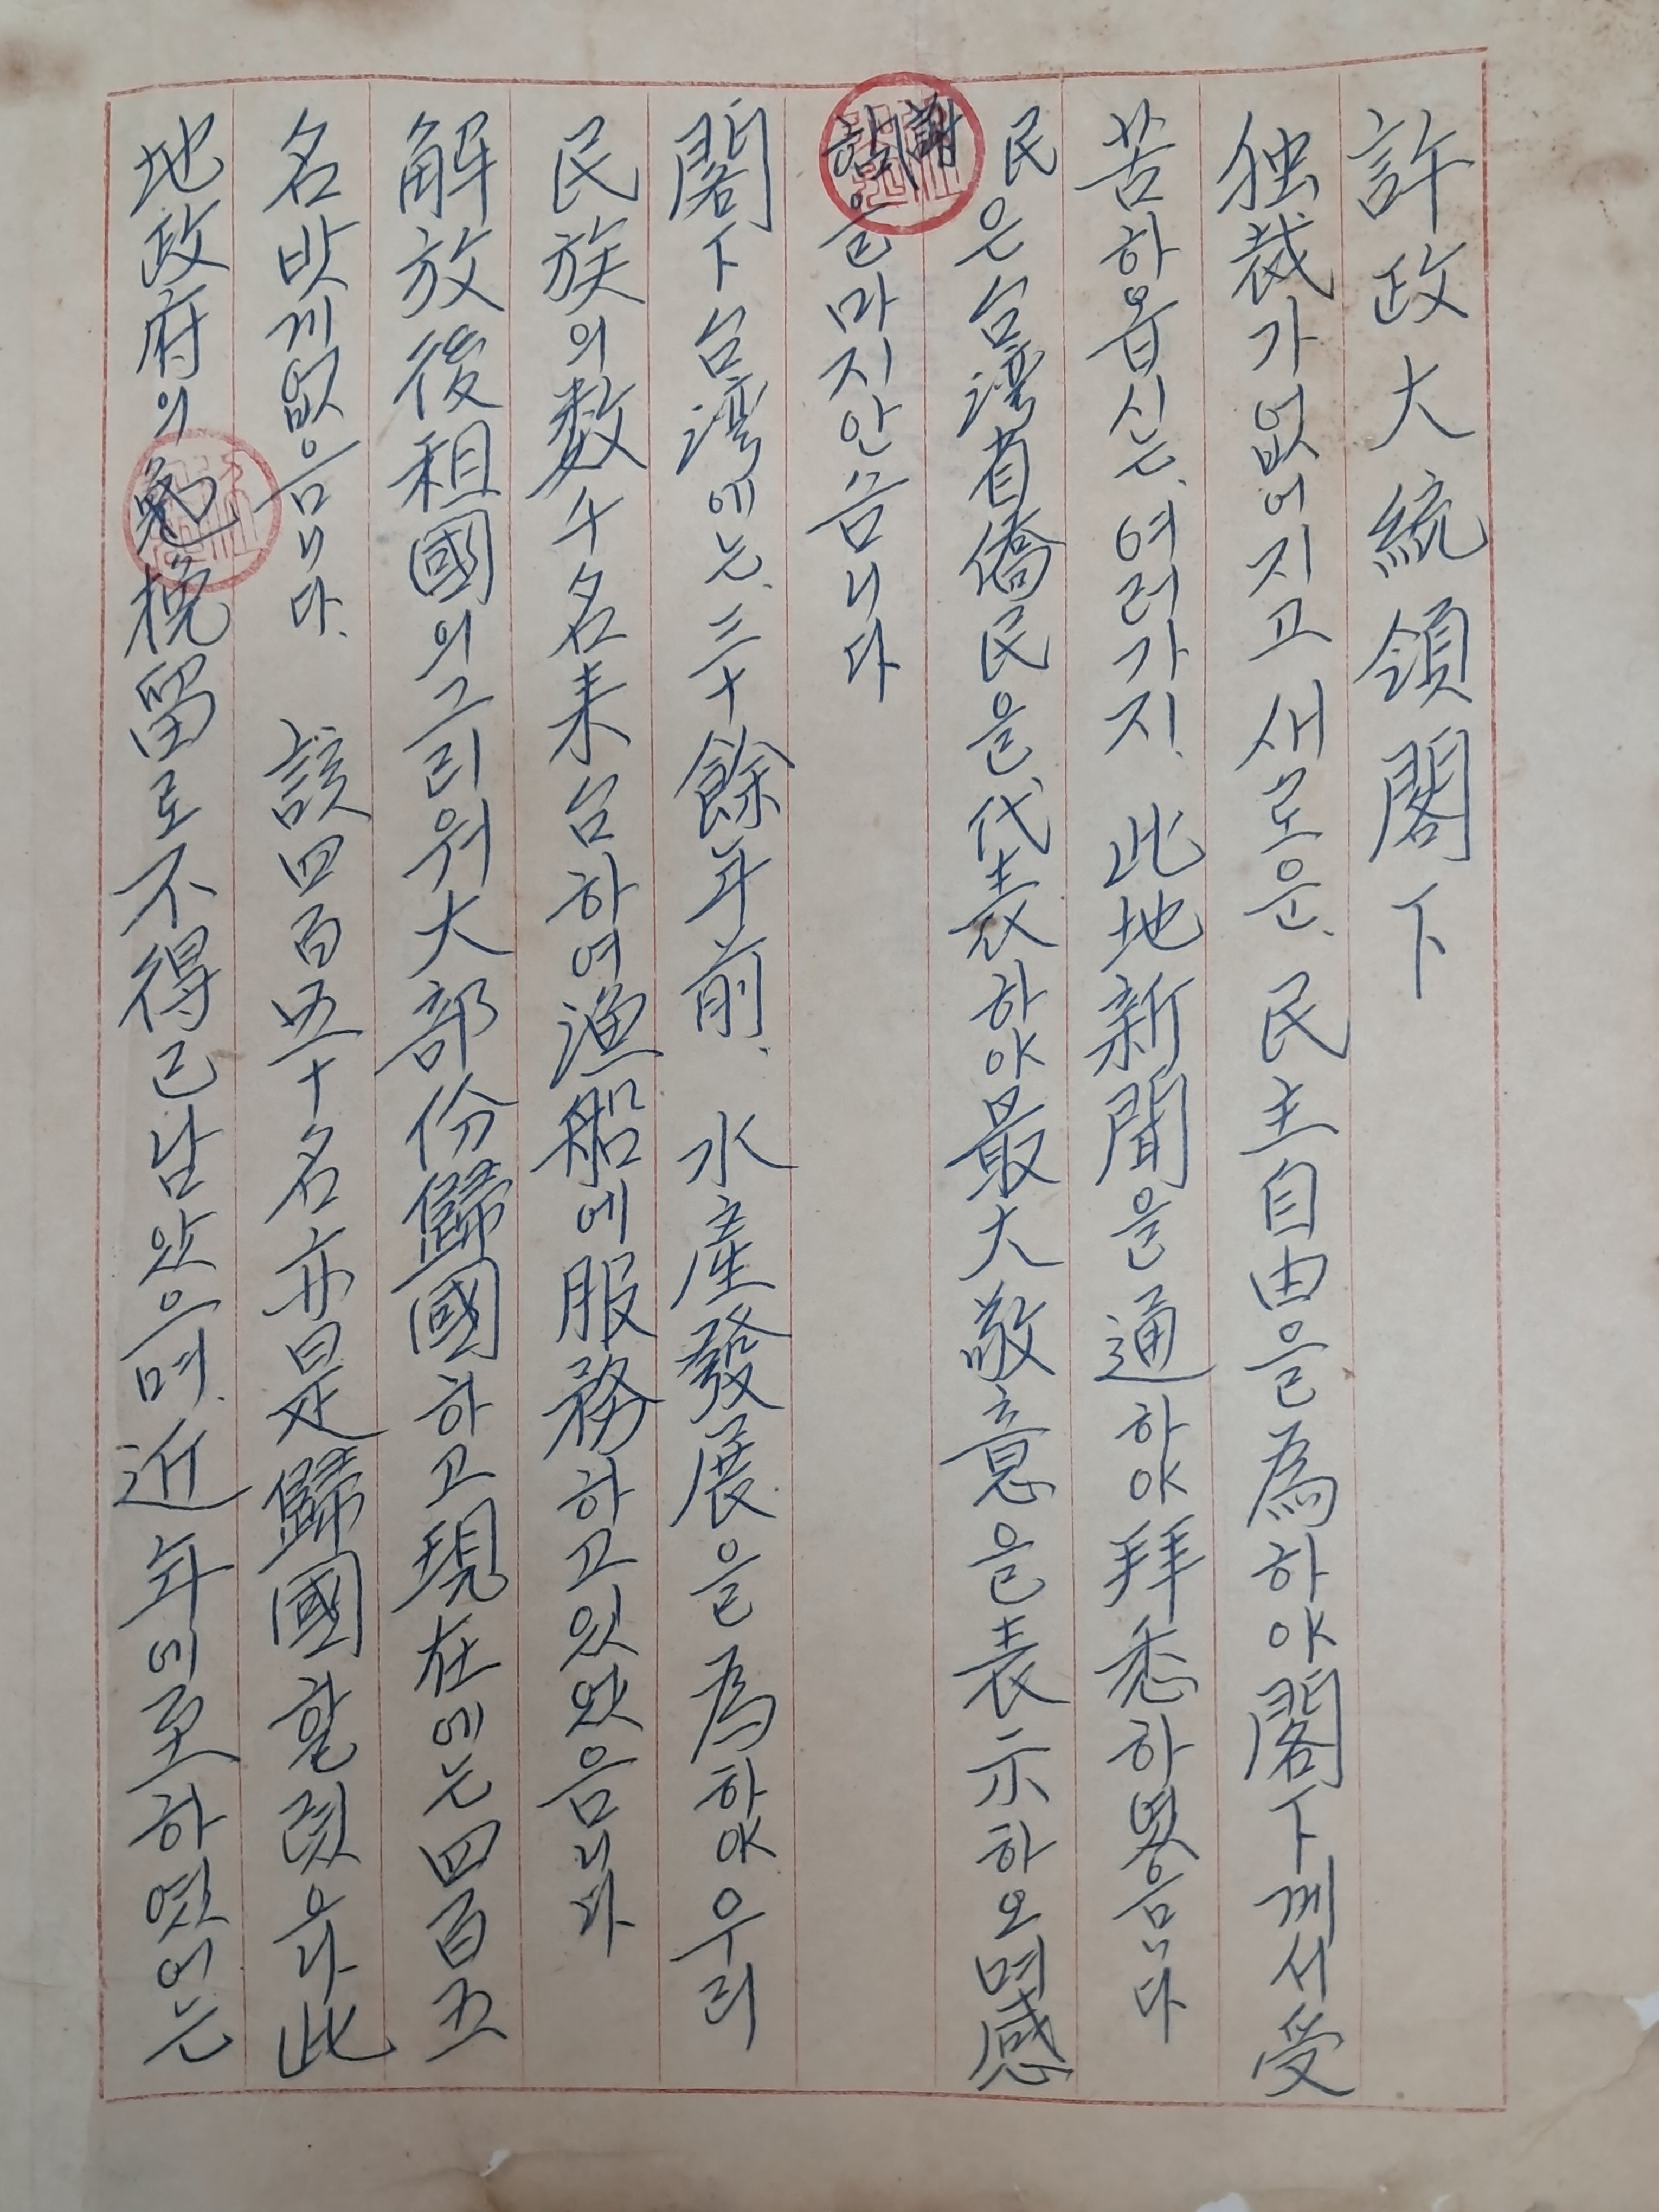 許政大統領閣下
独裁가없어지고새로운、民主自由을為하야閣下게서受
苦하옵시는、여러가지、此地新聞을通하야拜悉하였음니다
民은台湾省僑民을代表하야最大敬意을表示하오며感
謝함을마지안슴니다
閣下台湾에는、三十餘年前、水產發展을為하야우리
民族의数千名来台하여漁船에服務하고있었음니다
解放後祖國의그리워大部份歸國하고現在에는四百五
名밧게없음니다、該四百五十名亦是歸國할렸우나此
地政府의勉挽留로不得已남았으며、近年에至하였어는